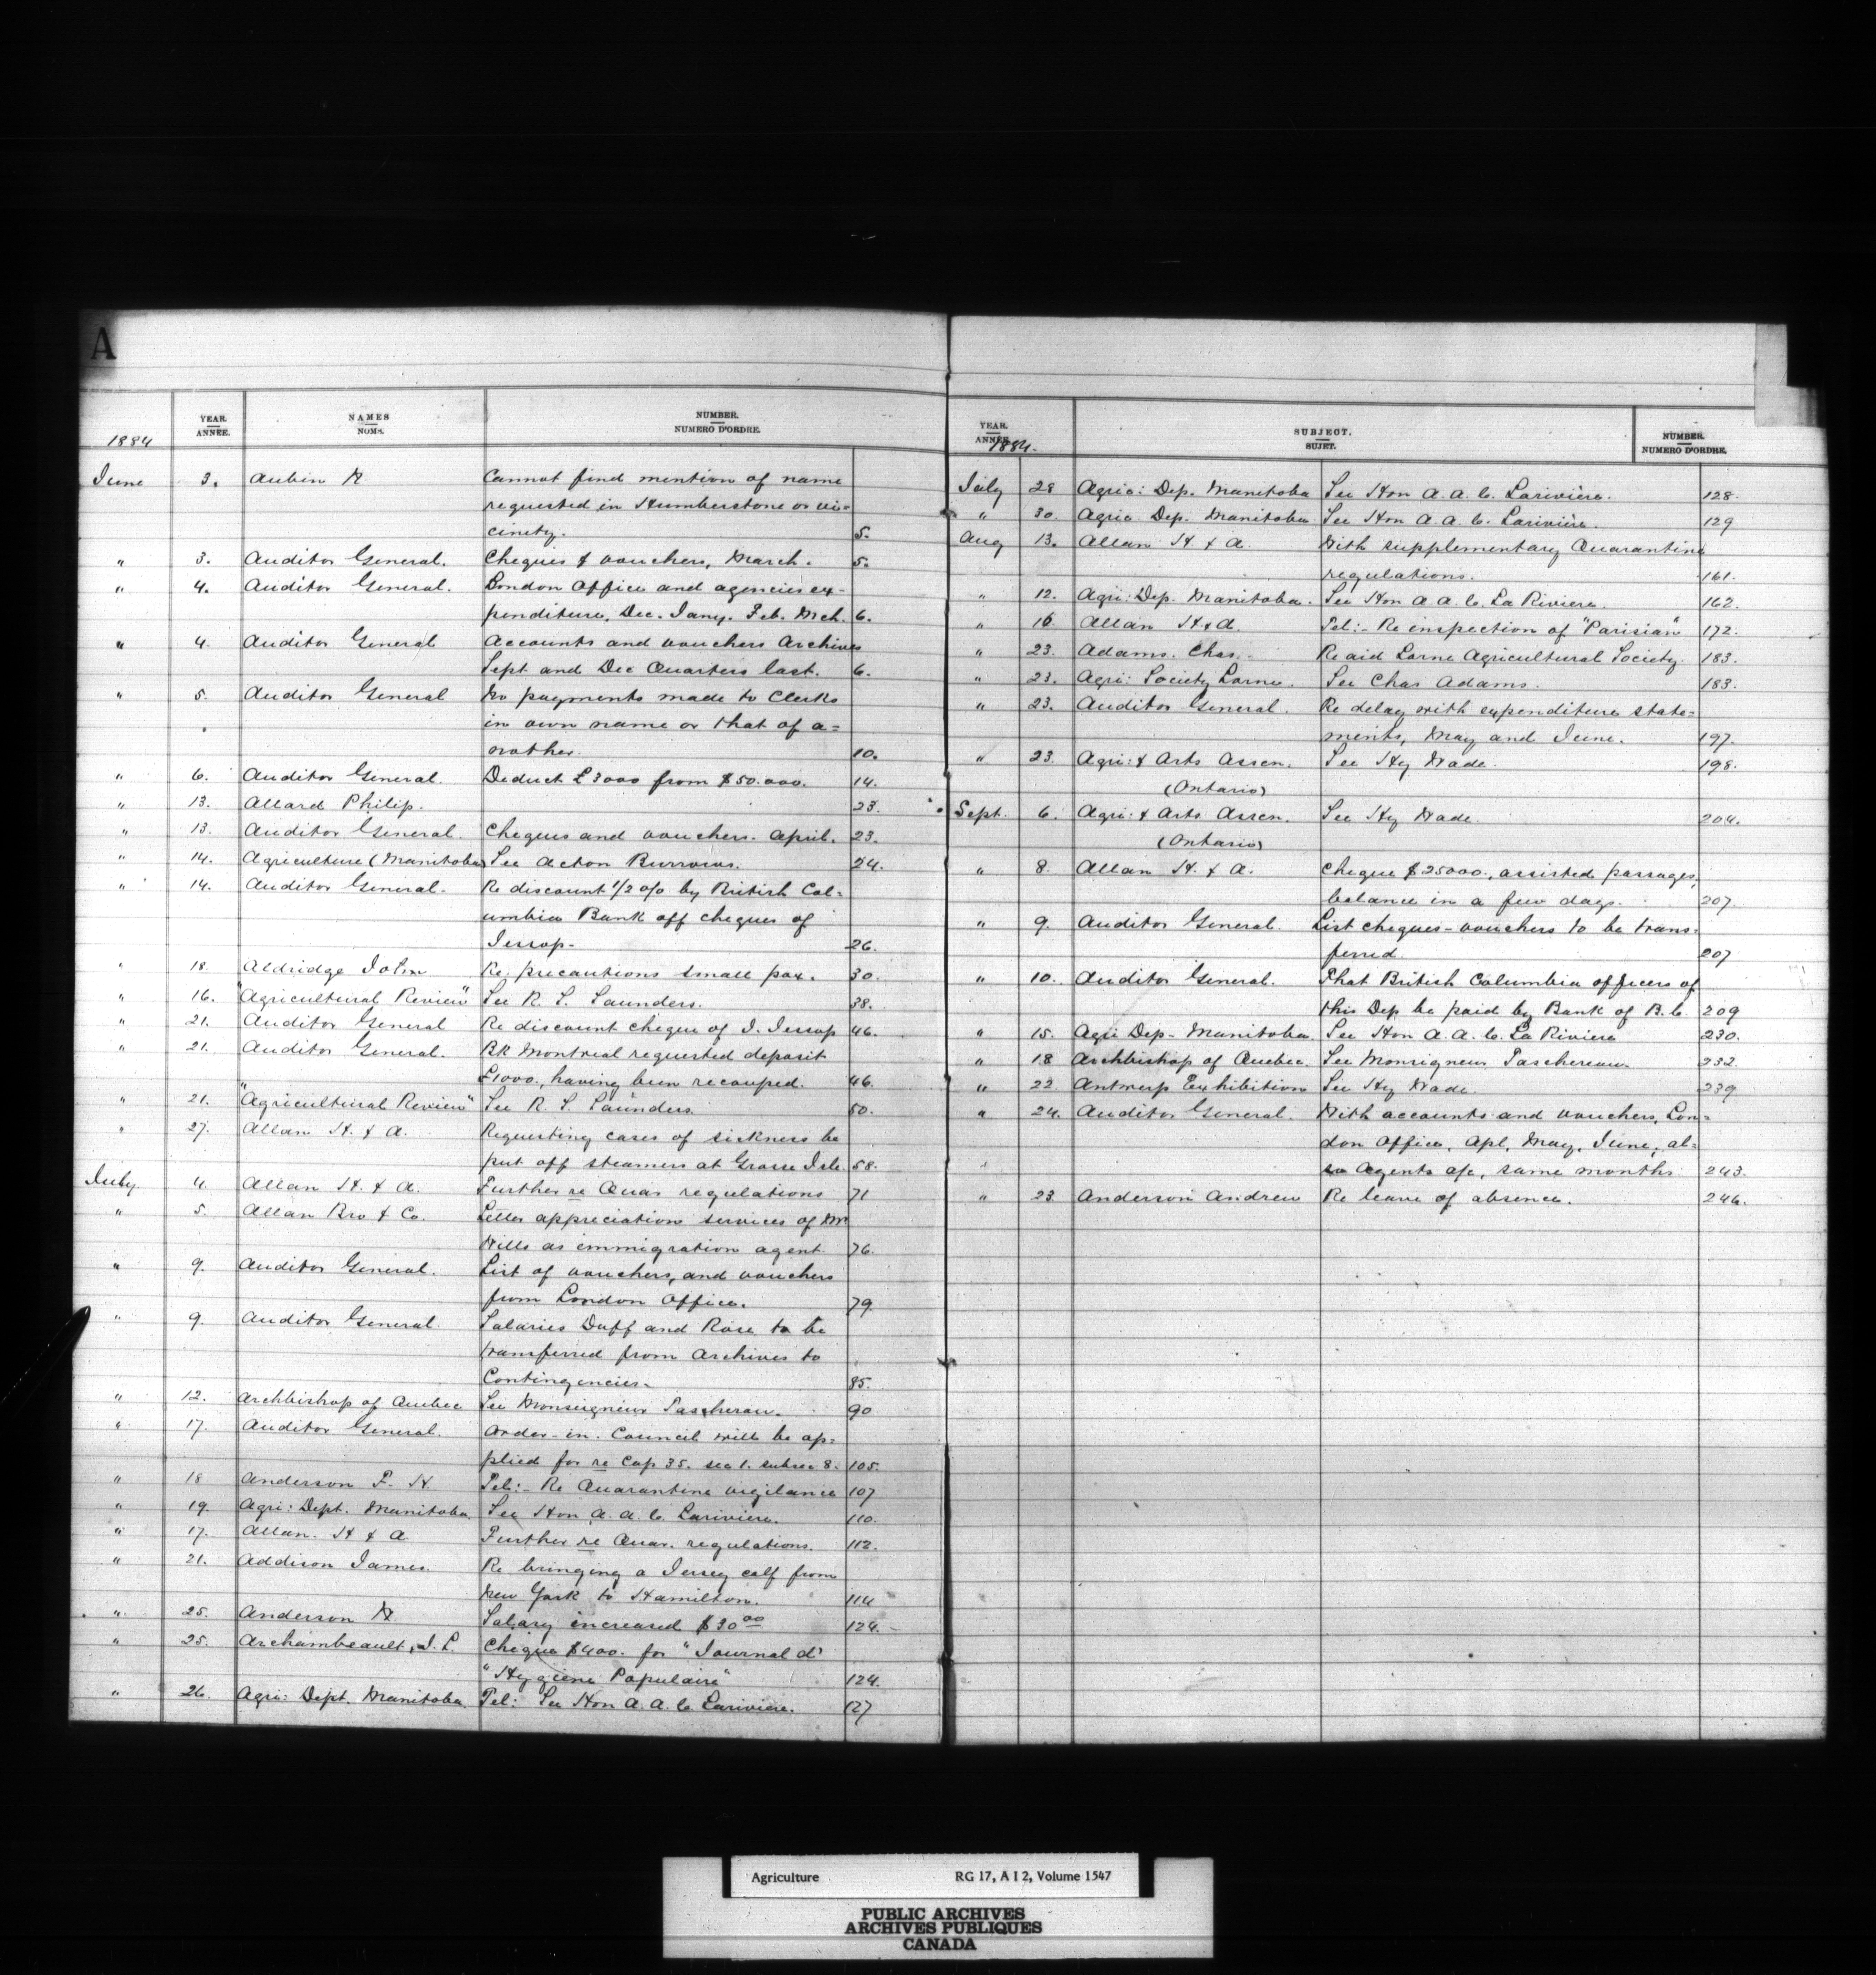 A
YEAR. ANNÉE. NAMES NOMS. NUMBER. NUMERO D'ORDRE.
1884
June 3. Aubin N. Cannot find mention of name
requested in Humberstone or vi=
cinity. 5.
" 3. Auditor General. Cheques & vouchers, March. 5.
" 4. Auditor General. London Office and agencies ex-
penditure, Dec. Jany. Feb. Mch. 6.
" 4. Auditor General Accounts and vouchers Archives
Sept and Dec Quarters last. 6.
" 5. Auditor General No payments made to Clerks
in own name or that of a=
nother. 10.
" 6. Auditor General. Deduct £3000 from $50.000. 14.
" 13. Allard Philip. 23.
" 13. Auditor General. Cheques and vouchers. April. 23.
" 14. Agriculture (Manitoba) See Acton Burrows. 24.
" 14. Auditor General. Re discount 1/2 o/o by British Col=
umbia Bank off cheques of
Jessop. 26.
" 18. Aldridge John Re precautions small pox. 30.
" 16. "Agricultural Review" See R. S. Saunders. 38.
" 21. Auditor General Re discount cheque of J. Jessop 46.
" 21. Auditor General. Bk Montreal requested deposit
£1000., having been recouped. 46.
" 21. "Agricultural Review" See R. S. Saunders. 50.
" 27. Allan H. & A. Requesting cases of sickness be
put off steamers at Grosse Isle. 58.
July 4. Allan H. & A. Further re Quar regulations 71
" 5. Allan Bro & Co. Letter appreciation services of Mr
Wills as immigration agent. 76.
" 9. Auditor General. List of vouchers, and vouchers
from London Office. 79.
" 9. Auditor General. Salaries Duff and Rose to be
transferred from Archives to
Contingencies. 85.
" 12. Archbishop of Quebec See Monseigneur Taschereau. 90
" 17. Auditor General. Order-in-Council will be ap=
plied for re Cap 35. sec 1. subsec 8. 105.
" 18 Anderson F. H. Tel:- Re Quarantine vigilance 107
" 19. Agri: Dept. Manitoba. See Hon A. A. C. Lariviere. 110.
" 17. Allan. H & A. Further re Quar. regulations. 112.
" 21. Addison James. Re bringing a Jersey calf from
New York to Hamilton. 114
" 25. Anderson W. Salary increased $30 00 124.
" 25. Archambeault, J. L. Cheque $400. for "Journal d'
"Hygiene Populaire" 124.
" 26. Agri: Dept. Manitoba. Tel: See Hon A. A. C. Lariviere. 127
YEAR. ANNÉE. SUBJECT. SUJET. NUMBER. NUMERO D'ORDRE.
1884.
July 28 Agric: Dep. Manitoba See Hon A. A. C. Larivière. 128.
" 30. Agric Dep. Manitoba. See Hon A. A. C. Larivière. 129
Aug 13. Allan H. & A. With supplementary Quarantine
regulations. 161.
" 12. Agri: Dep. Manitoba. See Hon A. A. C. La Riviere. 162.
" 16. Allan H. & A. Tel:- Re inspection of "Parisian" 172.
" 23. Adams. Chas. Re aid Lorne Agricultural Society. 183.
" 23. Agri: Society Lorne. See Chas Adams. 183.
" 23. Auditor General. Re delay with expenditure state=
ments, May and June. 197.
" 23. Agri: & Arts Assen. See Hy Wade. 198.
(Ontario)
Sept. 6. Agri: & Arts Assen. See Hy Wade. 204.
(Ontario)
" 8. Allan H. & A. Cheque $25000., assisted passages,
balance in a few days. 207.
" 9. Auditor General. List cheques-vouchers to be trans-
ferred. 207
" 10. Auditor General. That British Columbia officers of
this Dep be paid by Bank of B.C. 209
" 15. Agri Dep- Manitoba. See Hon A. A. C. La Riviere 230.
" 18 Archbishop of Quebec. See Monsigneur Taschereau. 232.
" 22. Antwerp Exhibition See Hy Wade. 239
" 24. Auditor General. With accounts and vouchers, Lon=
don Office, Apl, May, June, al=
so Agents a/c, same months. 243.
" 23. Anderson Andrew Re leave of absence. 246.
Agriculture RG 17, A I 2, Volume 1547
PUBLIC ARCHIVES
ARCHIVES PUBLIQUES
CANADA